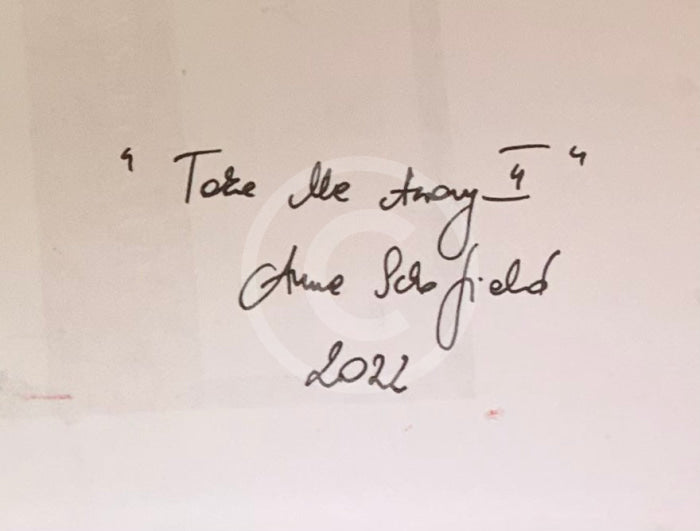 "Take Me Away II"
Anne Schofield
2022